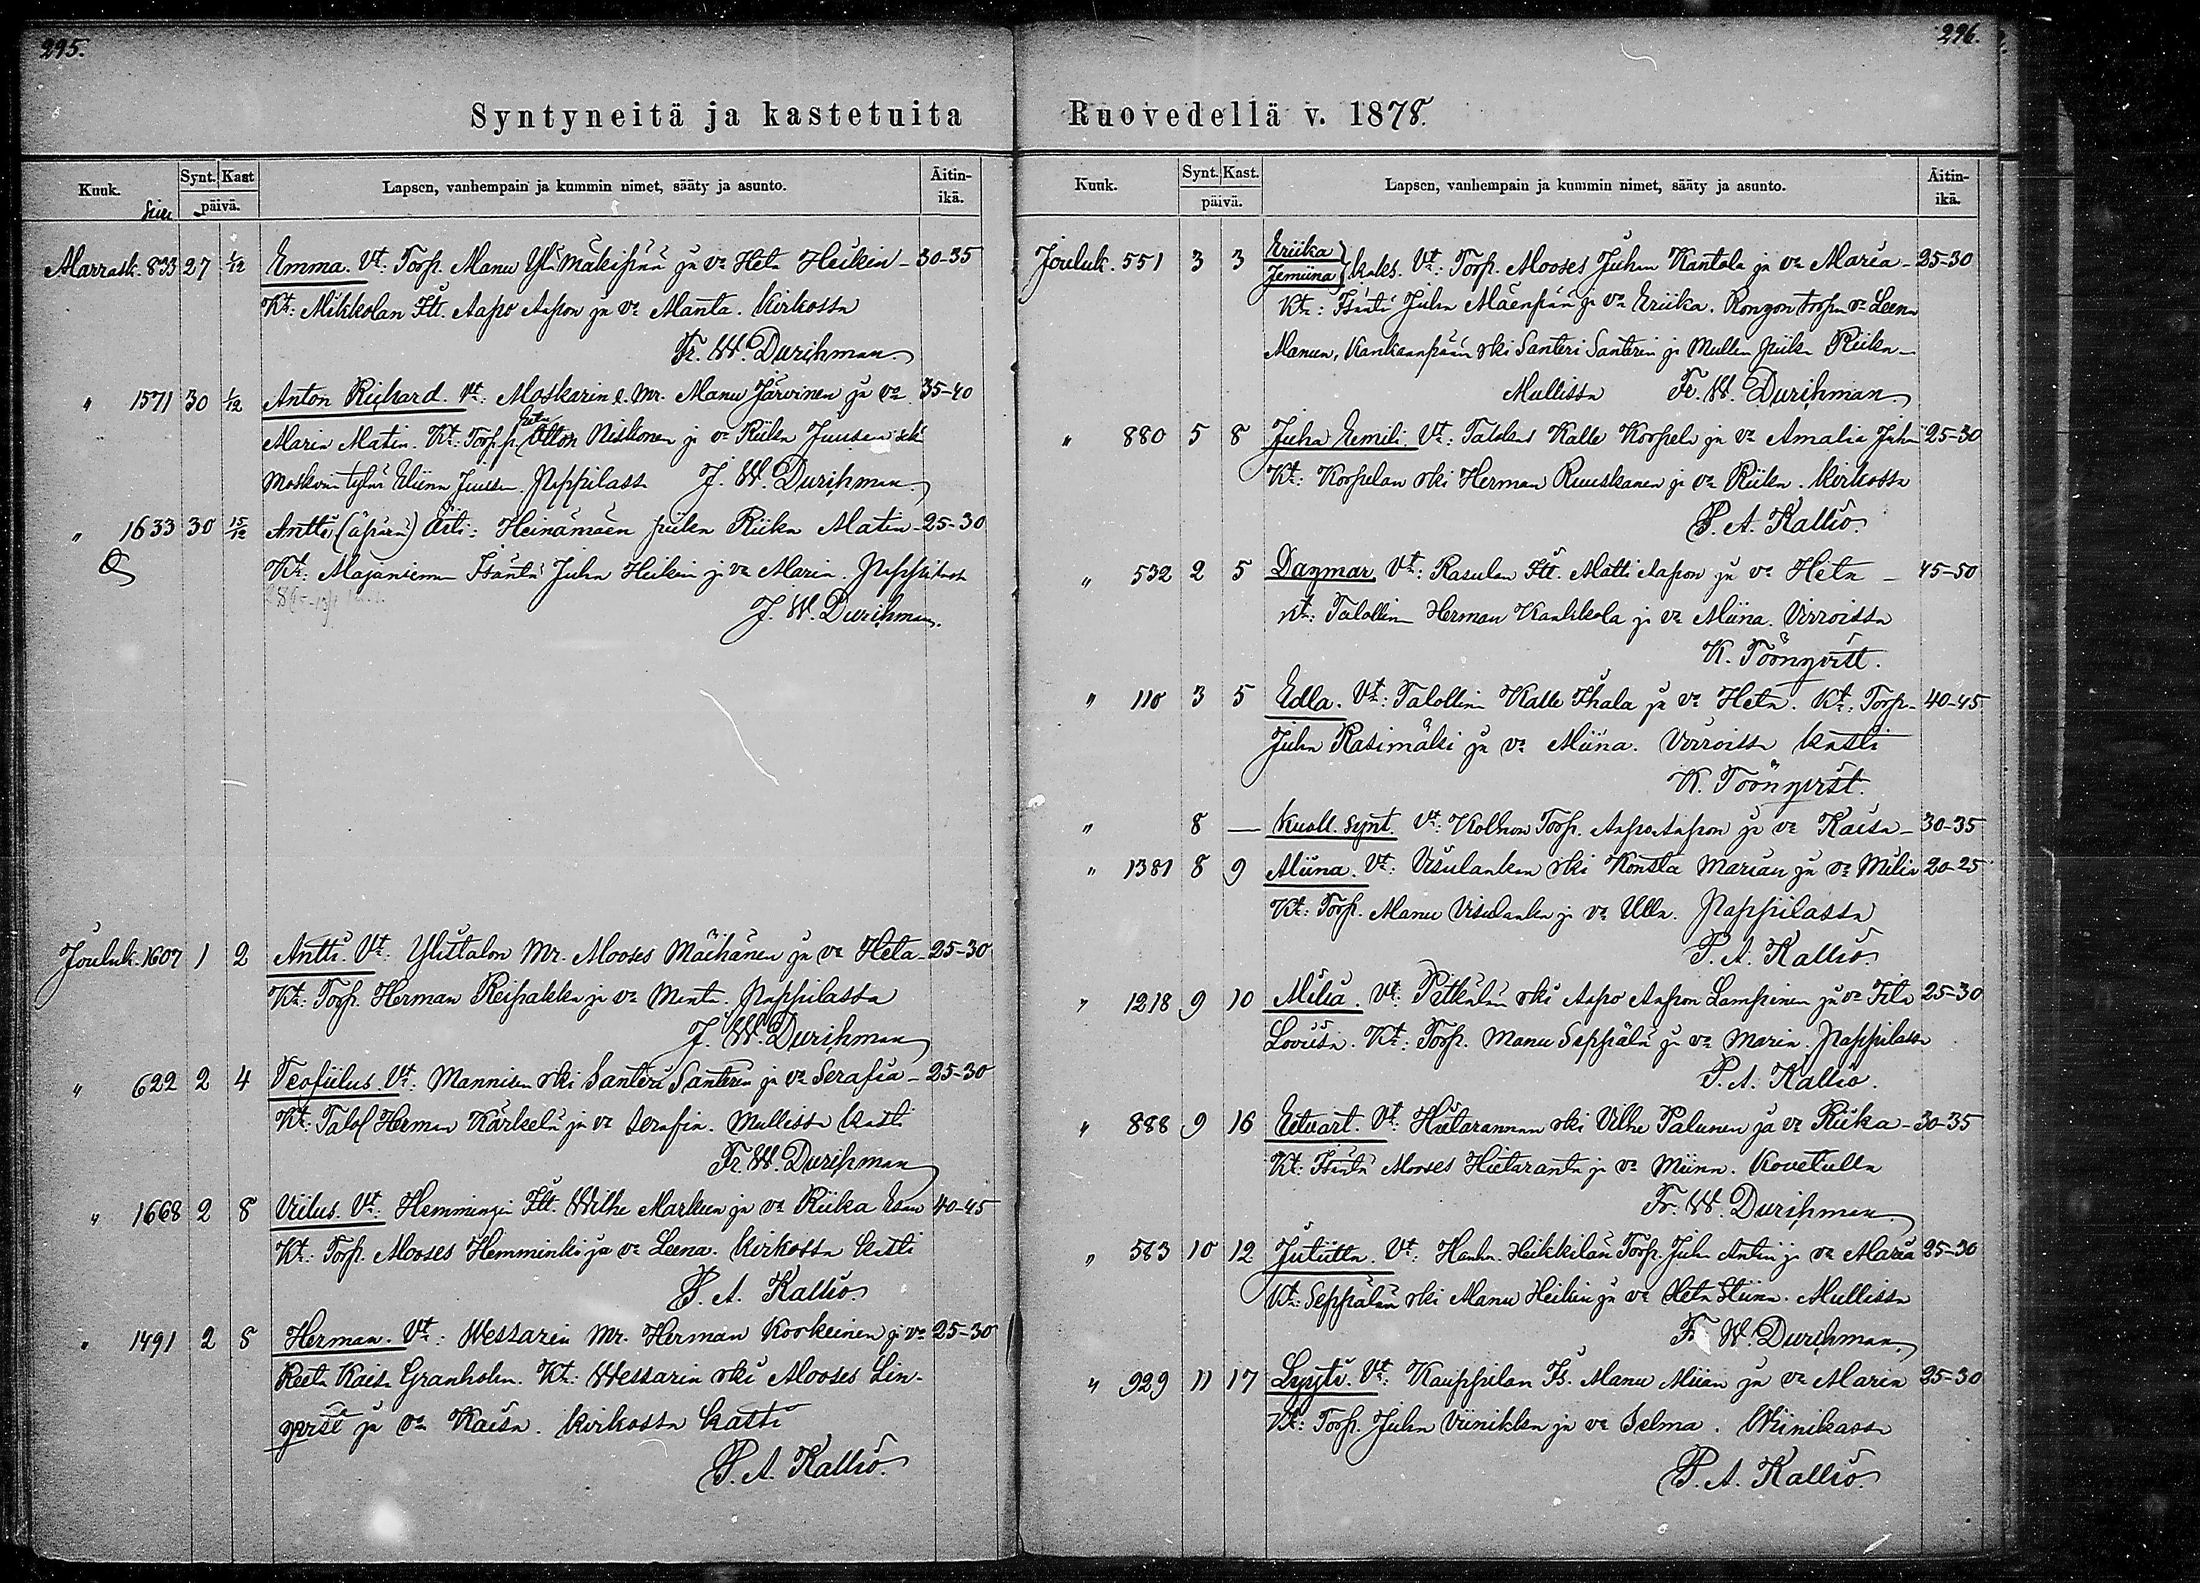 295.
Syntyneitä ja kastetuita
Kuuk. Synt. Kast päivä. Lapsen, vanhempain ja kummin nimet, sääty ja asunto. Äitin-ikä.
Marrask. 833 27 1/12 Emma. Vt: Torp. Manu Ylimäkipää ja vo Heta Heikin 30-35
Kt: Mikkolan Itt. Aapo Aapon ja vo Manta. Kirkossa
Fr. W. Durchman
" 1571 30 1/12 Anton Richard. Vt: Moskarin e. mr. Manu Järvinen ja vo 35-40
Maria Matin. Kt: Torp. p. Otton Niskonen ja vo Riika Juusen sekä
tytär Eliina Juusen. Pappilassa J. W. Durchman.
" 1633 30 15/12 Antti (äpärä) Äiti: Heinämäen piika Riika Matin 25-30
Kt: Isäntä Juha Heikin ja vo Maria. Pappilassa
J. W. Durchman.
Jouluk. 1607 1 2 Antti. Vt: Ylistalon Mr. Mooses Mäihänen ja vo Heta 25-30
Kt: Torp. Herman Reipakka ja vo Manta. Pappilassa
J. W. Durchman
" 622 2 4 Teofiilus. Vt: Mannisen rki Santeri Santerin ja vo Serafia 25-30
Kt: Talol Herman Kärkelä ja vo Serafia. Mullissa kasti
Fr. W. Durchman
" 1668 2 8 Viilus. Vt: Hemmingin Itt. Wilhe Markun ja vo Riika Esan 40-45
Kt: Torp. Mooses Hemminki ja vo Leena. Kirkossa kasti
P. A. Kallio
" 1491 2 8 Herman. Vt: Wessarin Mr. Herman Korkeinen ja vo 25-30
Reeta Kaisa Granholm. Kt: Wessarin rki Mooses Lin-
qvist ja vo Kaisa. Kirkossa kasti
P. A. Kallio.
296.
Ruovedellä v. 1878.
Kuuk. Synt. Kast. päivä. Lapsen, vanhempain ja kummin nimet, sääty ja asunto. Äitin-ikä.
Jouluk. 551 3 3 Eriika Jemiina } kaks. Vt: Torp. Mooses Juhan Kantola ja vo Maria 25-30
Kt: Isäntä Juha Mäenpää ja vo Eriika. Rongon torp. vo Leena
Manun, Kankaanpään rki Santeri Santerin ja Mullin piika Riika
Mullissa Fr. W. Durchman
" 880 5 8 Juha Eemili. Vt: Talokas Kalle Korpela ja vo Amalia Juhan 25-30
Kt: Korpelan rki Herman Ruuskanen ja vo Riika. Kirkossa
P. A. Kallio
" 532 2 5 Dagmar Vt: Rasulan Itt. Matti Aapon ja vo Heta 45-50
Kt: Talollinen Herman Kankkola ja vo Miina. Virroissa
K. Töönqvist.
" 110 3 5 Edla. Vt: Talollinen Kalle Ihala ja vo Heta. Kt: Torp. 40-45
Juha Rasimäki ja vo Miina. Virroissa kasti
K. Töönqvist.
" 8 — Kuoll. synt. Vt: Kolhon Torp. Aapo Aapon ja vo Kaisa 30-35
" 1381 8 9 Miina. Vt: Visulankan rki Konsta Marian ja vo Milia 20-25
Kt: Torp. Manu Visulanka ja vo Ulla. Pappilassa
P. A. Kallio
" 1218 9 10 Milia. Vt: Pitkälän rki Aapo Aapon Lampinen ja vo Fila 25-30
Lovisa. Kt: Torp. Manu Seppälä ja vo Maria. Pappilassa
P. A. Kallio.
" 888 9 16 Eetvart. Vt: Hietarannan rki Vilhe Palunen ja vo Riika 30-35
Kt: Isäntä Mooses Hietaranta ja vo Miina. Kovetulla
Fr. W. Durchman
" 583 10 12 Jutiitta. Vt: Heikkilän Torp. Juha Antin ja vo Maria 25-30
Kt: Seppälän rki Manu Heikin ja vo Heta Stiina. Mullissa
Fr W. Durchman
" 929 11 17 Lyyti. Vt: Kauppilan Is. Manu Miian ja vo Maria 25-30
Kt: Torp. Juha Viinikka ja vo Selma. Wiinikassa
P. A. Kallio